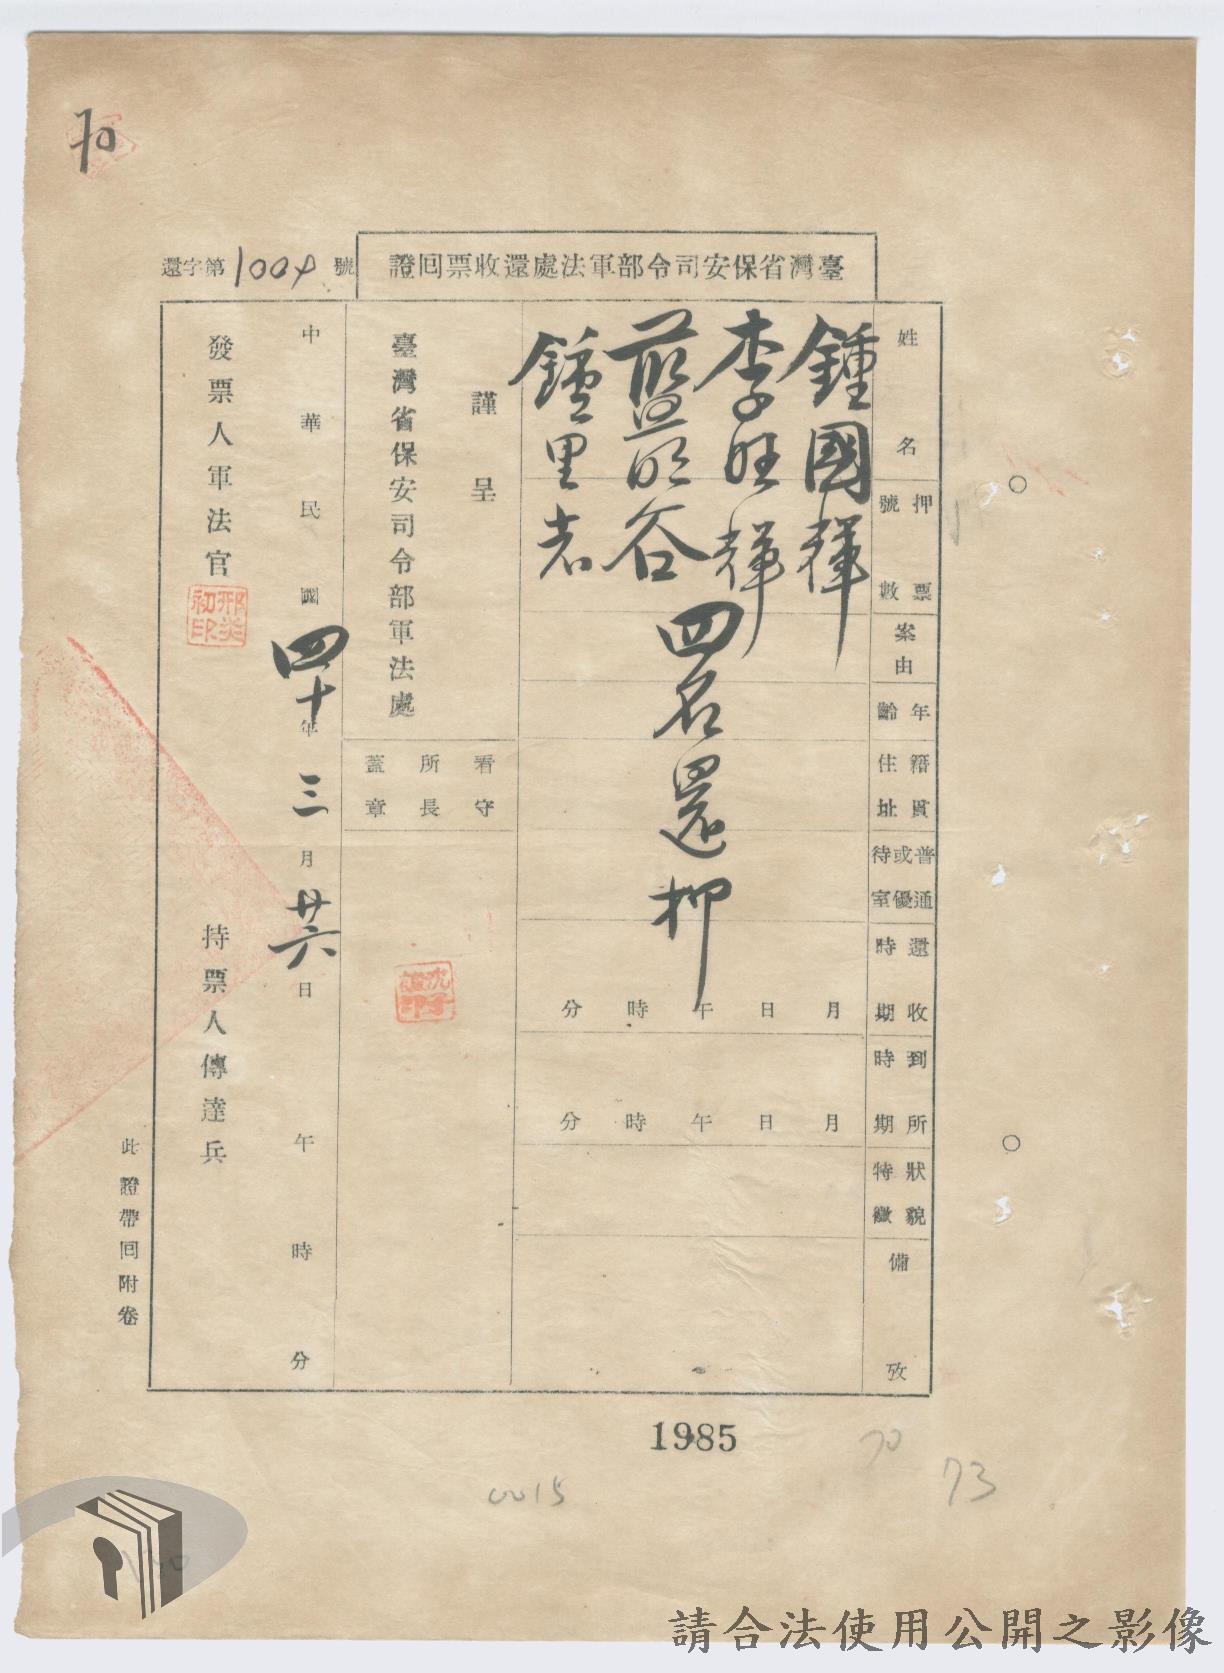 70
臺灣省保安司令部軍法處還收票回證
還字第1004號
姓名
押票號數
案由
年齡
籍貫住址
普通或優待室
還收時期
到所時期
狀貌特徵
備攷
鍾國輝
李旺輝
藍明谷
鍾里志
四名還押
月日午時分
月日午時分
謹呈
臺灣省保安司令部軍法處
看守所長蓋章
中華民國四十年三月廿六日午時分
發票人軍法官
邢炎初印
持票人傳達兵
此證帶回附卷
1985
70
73
0015
請合法使用公開之影像